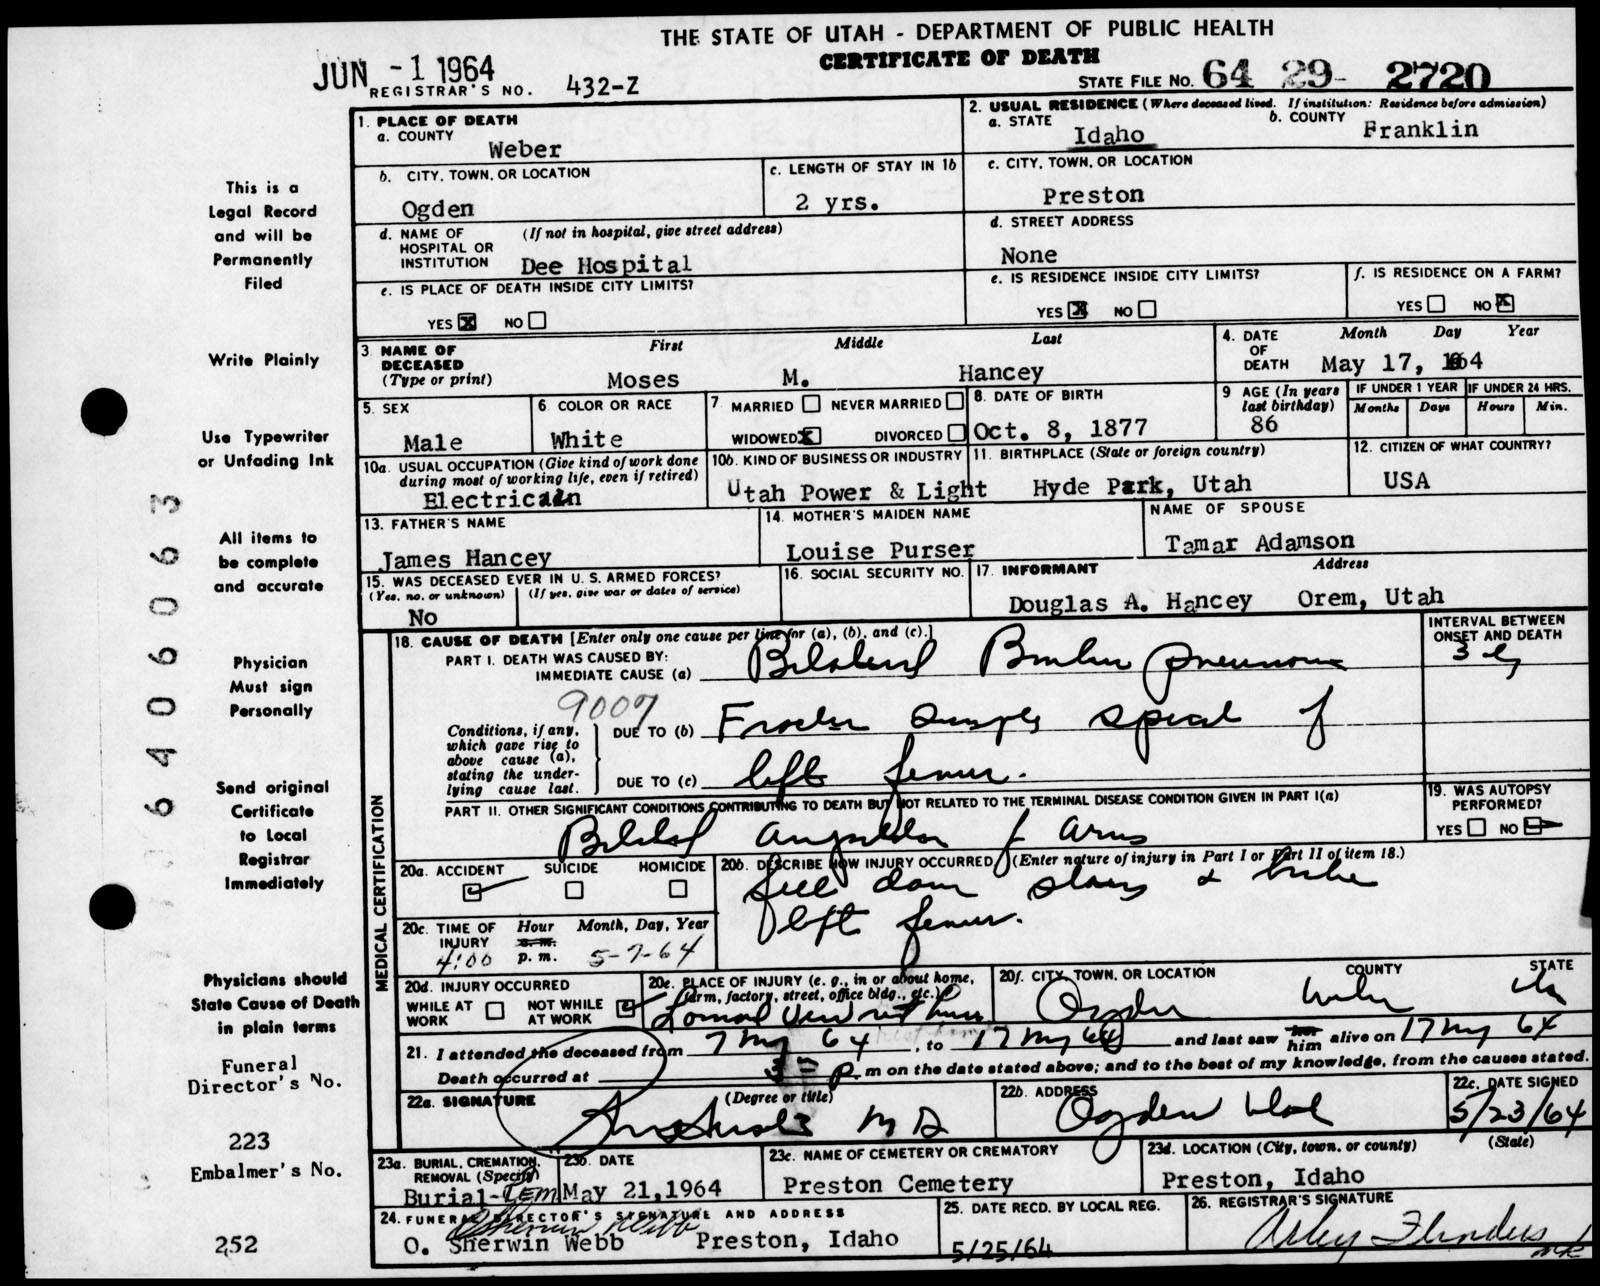 THE STATE OF UTAH - DEPARTMENT OF PUBLIC HEALTH
CERTIFICATE OF DEATH
JUN -1 1964
REGISTRAR'S NO. 432-Z
STATE FILE NO. 64 29- 2720
1. PLACE OF DEATH
a. COUNTY
Weber
2. USUAL RESIDENCE (Where deceased lived. If institution: Residence before admission)
a. STATE Idaho b. COUNTY Franklin
b. CITY, TOWN, OR LOCATION
Ogden
c. LENGTH OF STAY IN 1b
2 yrs.
c. CITY, TOWN, OR LOCATION
Preston
d. NAME OF HOSPITAL OR INSTITUTION (If not in hospital, give street address)
Dee Hospital
d. STREET ADDRESS
None
e. IS PLACE OF DEATH INSIDE CITY LIMITS?
YES X NO
e. IS RESIDENCE INSIDE CITY LIMITS?
YES X NO
f. IS RESIDENCE ON A FARM?
YES NO X
3 NAME OF DECEASED (Type or print)
First Middle Last
Moses M. Hancey
4. DATE OF DEATH
Month Day Year
May 17, 1964
5. SEX
Male
6. COLOR OR RACE
White
7 MARRIED NEVER MARRIED
WIDOWED X DIVORCED
8. DATE OF BIRTH
Oct. 8, 1877
9 AGE (In years last birthday)
86
IF UNDER 1 YEAR
Months Days
IF UNDER 24 HRS.
Hours Min.
10a. USUAL OCCUPATION (Give kind of work done during most of working life, even if retired)
Electricain
10b. KIND OF BUSINESS OR INDUSTRY
Utah Power & Light
11. BIRTHPLACE (State or foreign country)
Hyde Park, Utah
12. CITIZEN OF WHAT COUNTRY?
USA
13. FATHER'S NAME
James Hancey
14. MOTHER'S MAIDEN NAME
Louise Purser
NAME OF SPOUSE
Tamar Adamson
15. WAS DECEASED EVER IN U. S. ARMED FORCES?
(Yes, no. or unknown) (If yes, give war or dates of service)
No
16. SOCIAL SECURITY NO.
17. INFORMANT Address
Douglas A. Hancey Orem, Utah
MEDICAL CERTIFICATION
18. CAUSE OF DEATH [Enter only one cause per line for (a), (b), and (c).]
PART I. DEATH WAS CAUSED BY:
IMMEDIATE CAUSE (a) Bilateral Broncho pneumonia
INTERVAL BETWEEN ONSET AND DEATH
9007
Conditions, if any, which gave rise to above cause (a), stating the underlying cause last.
DUE TO (b) Fracture simple spiral of
DUE TO (c) left femur.
PART II. OTHER SIGNIFICANT CONDITIONS CONTRIBUTING TO DEATH BUT NOT RELATED TO THE TERMINAL DISEASE CONDITION GIVEN IN PART I(a)
Bilateral amputation of arms
19. WAS AUTOPSY PERFORMED?
YES NO
20a. ACCIDENT SUICIDE HOMICIDE
20b. DESCRIBE HOW INJURY OCCURRED (Enter nature of injury in Part I or Part II of item 18.)
fell down stairs & broke
left femur.
20c. TIME OF INJURY
Hour a. m. p. m. Month, Day, Year
4:00 5-7-64
20d. INJURY OCCURRED
WHILE AT WORK NOT WHILE AT WORK
20e. PLACE OF INJURY (e. g., in or about home, farm, factory, street, office bldg., etc.)
20f. CITY, TOWN, OR LOCATION COUNTY STATE
Ogden Weber Utah
21. I attended the deceased from 7 May 64, to 17 May 64 and last saw her him alive on 17 May 64
Death occurred at 3 P. m on the date stated above; and to the best of my knowledge, from the causes stated.
22a. SIGNATURE (Degree or title)
MD
22b. ADDRESS
Ogden Utah
22c. DATE SIGNED
5/23/64
23a. BURIAL, CREMATION, REMOVAL (Specify)
Burial-Rem
23b. DATE
May 21, 1964
23c. NAME OF CEMETERY OR CREMATORY
Preston Cemetery
23d. LOCATION (City, town, or county) (State)
Preston, Idaho
24. FUNERAL DIRECTOR'S SIGNATURE AND ADDRESS
O Sherwin Webb
O. Sherwin Webb Preston, Idaho
25. DATE RECD. BY LOCAL REG.
5/25/64
26. REGISTRAR'S SIGNATURE
Arley Flinders
MR
This is a
Legal Record
and will be
Permanently
Filed
Write Plainly
Use Typewriter
or Unfading Ink
All items to
be complete
and accurate
Physician
Must sign
Personally
Send original
Certificate
to Local
Registrar
Immediately
Physicians should
State Cause of Death
in plain terms
Funeral
Director's No.
223
Embalmer's No.
252
6406063